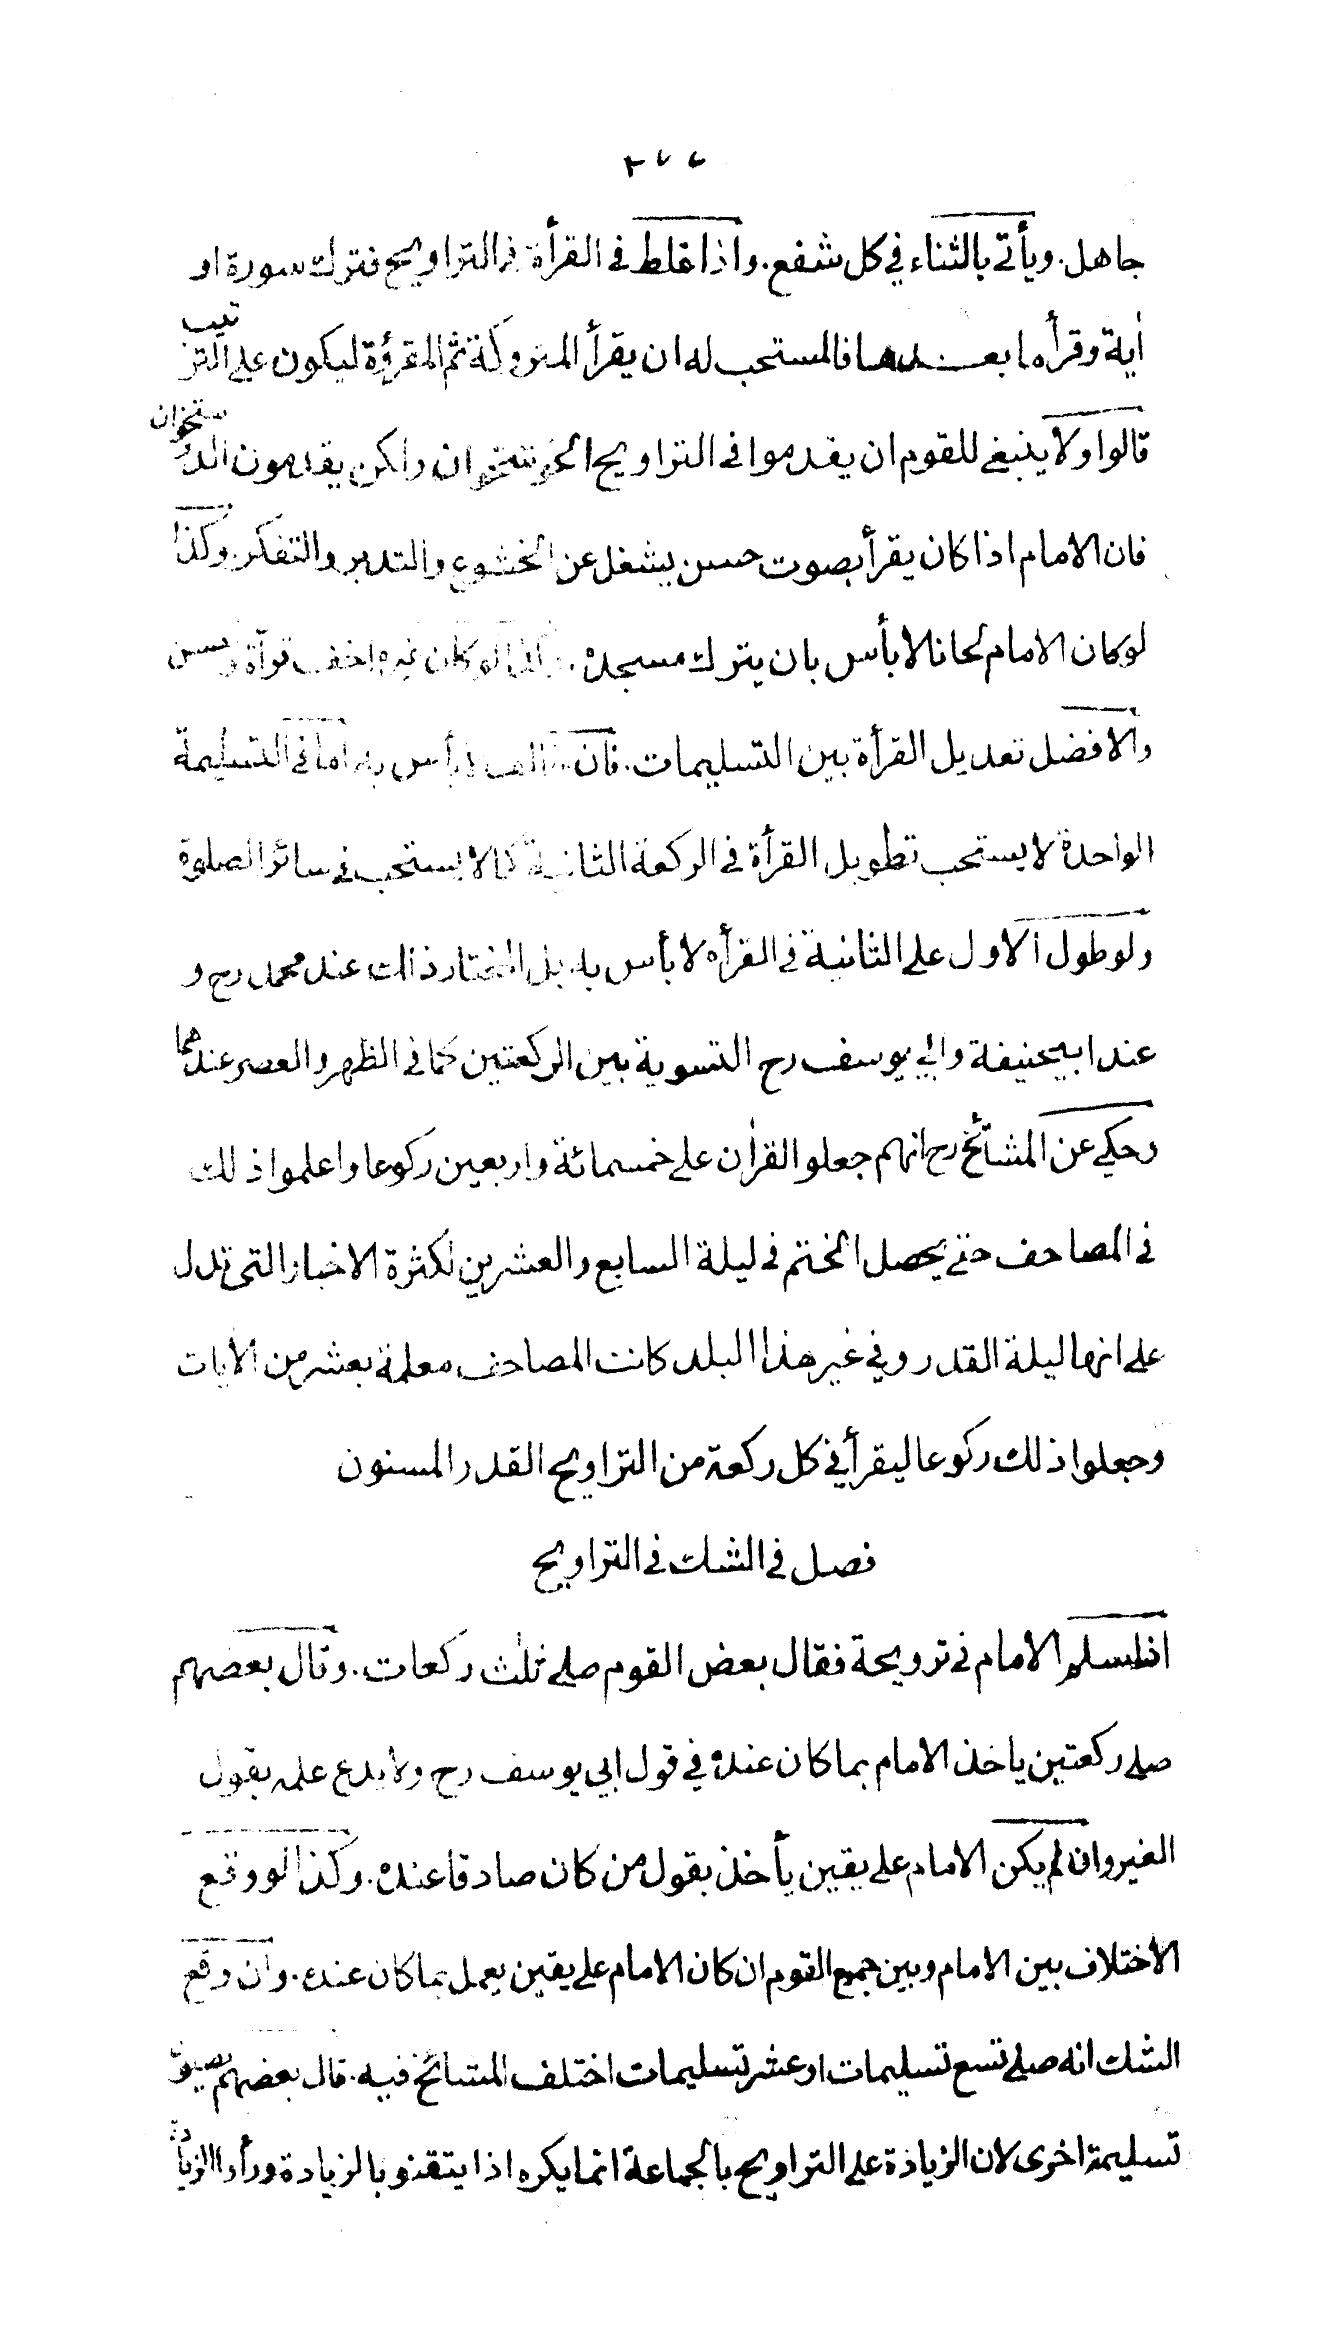 ٢٧٧
جاهل. ويأتي بالثناء في كل شفع. واذا غلط في القرأة في التراويح فترك سورة او
أية وقرأ ما بعدها فالمستحب له ان يقرأ المتروكة ثم المقرؤة ليكون على الترتيب
قالوا ولا ينبغي للقوم ان يقدموا في التراويح الخوشخوان ولكن يقدمون الدرستخوان
فان الامام اذا كان يقرأ بصوت حسن يشغل عن الخشوع والتدبر والتفكر. وكذا
لو كان الامام لحانا لا بأس بان يترك مسجده. وكذا لو كان غيره اخف قرأة وحسن
والافضل تعديل القرأة بين التسليمات. فان خالف لا بأس به اما في التسليمة
الواحدة لا يستحب تطويل القرأة في الركعة الثانية كما لا يستحب في سائر الصلوة
ولو طول الاول على الثانية في القرأه لا بأس به بل المختار ذلك عند محمد رح و
عند ابيحنيفة وابي يوسف رح التسوية بين الركعتين كما في الظهر والعصر عندهما
وحكي عن المشائخ رح انهم جعلوا القرأن على خمسمائة واربعين ركوعا واعلموا ذلك
في المصاحف حتى يحصل الختم في ليلة السابع والعشرين لكثرة الاخبار التي تدل
على انها ليلة القدر وفي غير هذا البلد كانت المصاحف معلمة بعشر من الأيات
وجعلوا ذلك ركوعا ليقرأ في كل ركعة من التراويح القدر المسنون
فصل في الشك في التراويح
اذا سلم الامام في ترويحة فقال بعض القوم صلى ثلث ركعات. وقال بعضهم
صلى ركعتين ياخذ الامام بما كان عنده في قول ابي يوسف رح ولا يدع علمه بقول
الغير وان لم يكن الامام على يقين يأخذ بقول من كان صادقا عنده. وكذا لو وقع
الاختلاف بين الامام وبين جميع القوم ان كان الامام على يقين يعمل بما كان عنده. وان وقع
الشك انه صلى تسع تسليمات او عشر تسليمات اختلف المشائخ فيه. قال بعضهم يصلون
تسليمة اخرى لان الزيادة على التراويح بالجماعة انما يكره اذا يتقنو بالزيادة ورأوا الزيادة